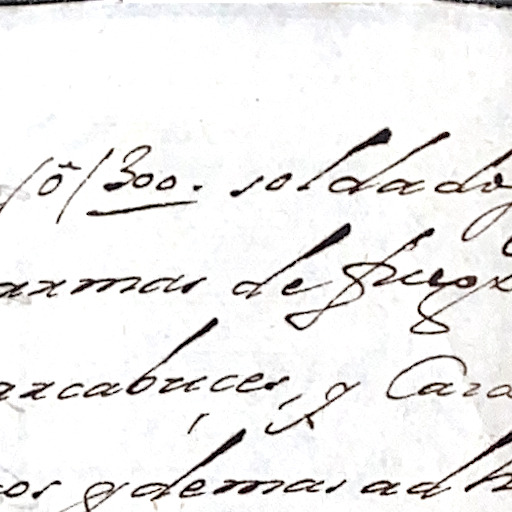 /ô/ 300. soldados
armas de fuego
arcabuces, y Cara
os y demas adh